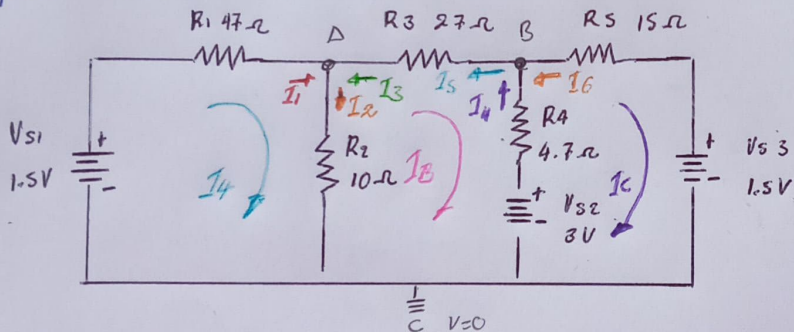 R1 47Ω
A
R3 27Ω
B
R5 15Ω
I1
I2
I3
I5
I4
I6
VS1
1.5V
+
-
R2
10Ω
R4
4.7Ω
+
-
VS2
3V
+
-
VS3
1.5V
IA
IB
IC
C V=0